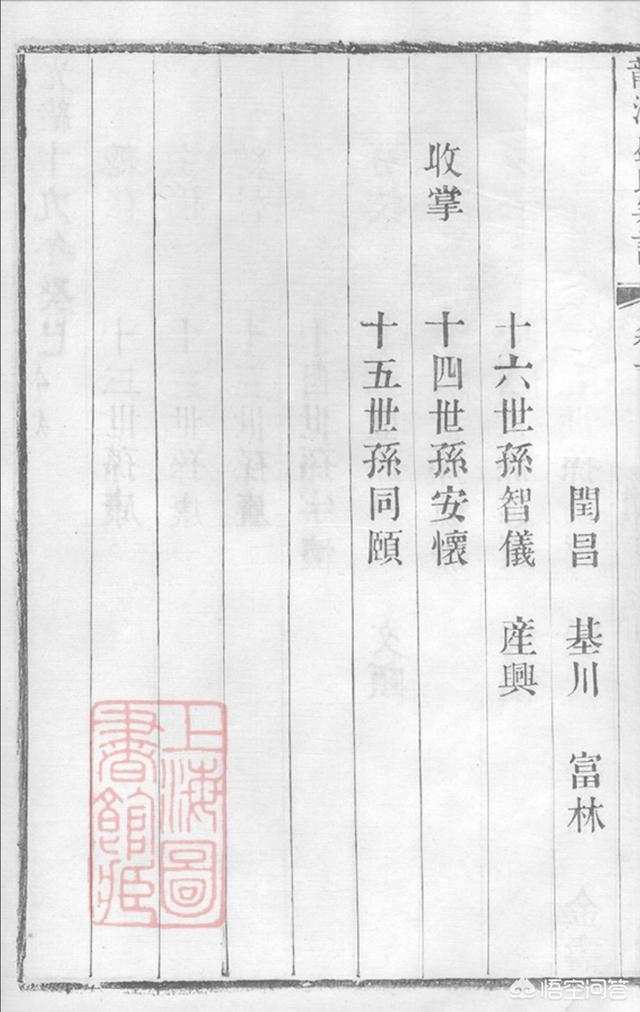 閏昌 基川 富林
十六世孫智儀 産興
收掌 十四世孫安懷
十五世孫同頤
上海圖
書館藏
悟空问答